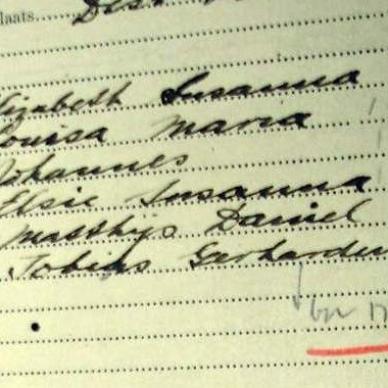 laats
Elizabeth Susanna
Louisa Maria
Johannes
Elsie Susanna
Matthys Daniel
Tobias Gerhardus